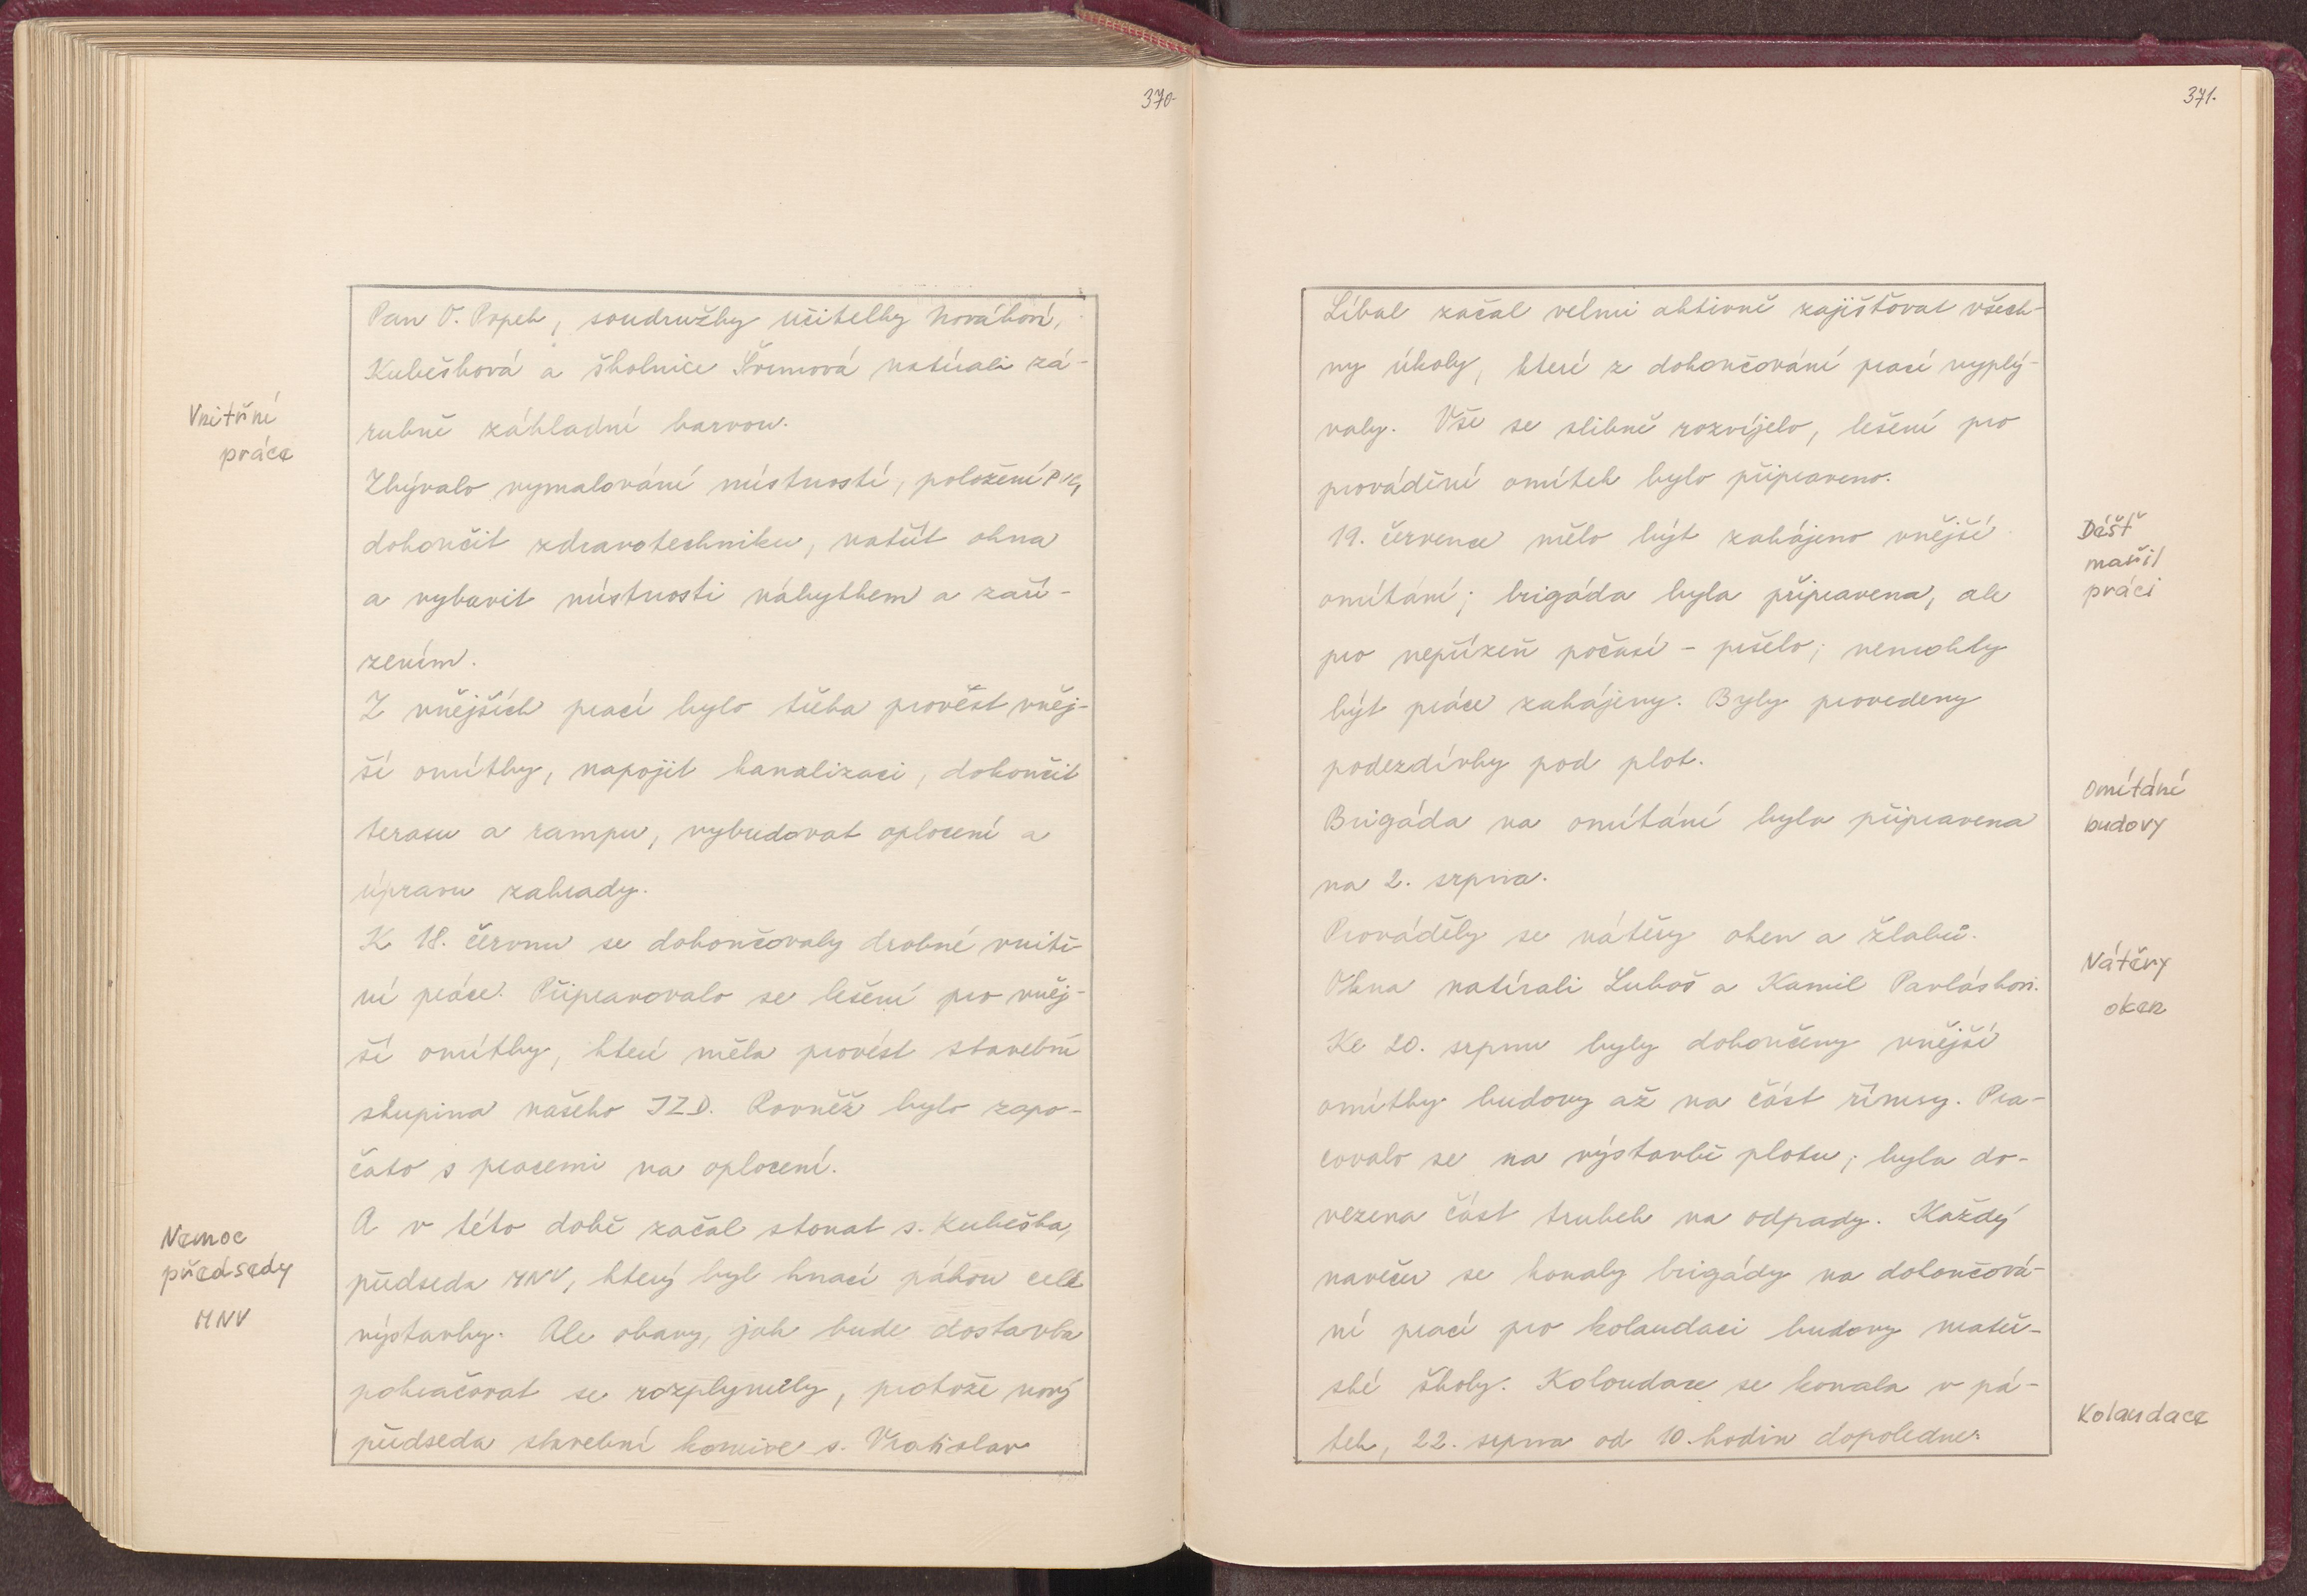 370.
Pan O. Popek, soudružky učitelky Nováková,
Kubešková a školnice Šrímová natírali zá-
rubně základní barvou.
Vnitřní
práce
Zbývalo vymalování místností, položení PVC,
dokončit zdravotechniku, natřít okna
a vybavit místnosti nábytkem a zaří-
zením.
Z vnějších prací bylo třeba provést vněj-
ší omítky, napojit kanalizaci, dokončit
terasu a rampu, vybudovat oplocení a
úpravu zahrady.
K 18. červnu se dokončovaly drobné vnitř-
ní práce. Připravovalo se lešení pro vněj-
ší omítky, které měla provést stavební
skupina našeho JZD. Rovněž bylo zapo-
čato s pracemi na oplocení.
A v této době začal stonat s. Kubeška,
předseda MNV, který byl hnací pákou celé
výstavby. Ale obavy, jak bude dostavba
pokračovat se rozplynuly, protože nový
předseda stavební komise s. Vratislav
Nemoc
předsedy
MNV
371.
Líbal začal velmi aktivně zajišťovat všech-
ny úkoly, které z dokončování prací vyplý-
valy. Vše se slibně rozvíjelo, lešení pro
provádění omítek bylo připraveno.
19. července mělo být zahájeno vnější
omítání; brigáda byla připravena, ale
pro nepřízeň počasí - pršelo; nemohly
být práce zahájeny. Byly provedeny
podezdívky pod plot.
Déšť
mařil
práci
Brigáda na omítání byla připravena
na 2. srpna.
Omítání
budovy
Prováděly se nátěry oken a žlabů.
Okna natírali Luboš a Kamil Pavláskovi.
Nátěry
oken
Ke 20. srpnu byly dokončeny vnější
omítky budovy až na část římsy. Pra-
covalo se na výstavbě plotu; byla do-
vezena část trubek na odpady. Každý
navečer se konaly brigády na dokončová-
ní prací pro kolaudaci budovy mateř-
ské školy. Kolaudace se konala v pá-
tek, 22. srpna od 10. hodin dopoledne.
Kolaudace